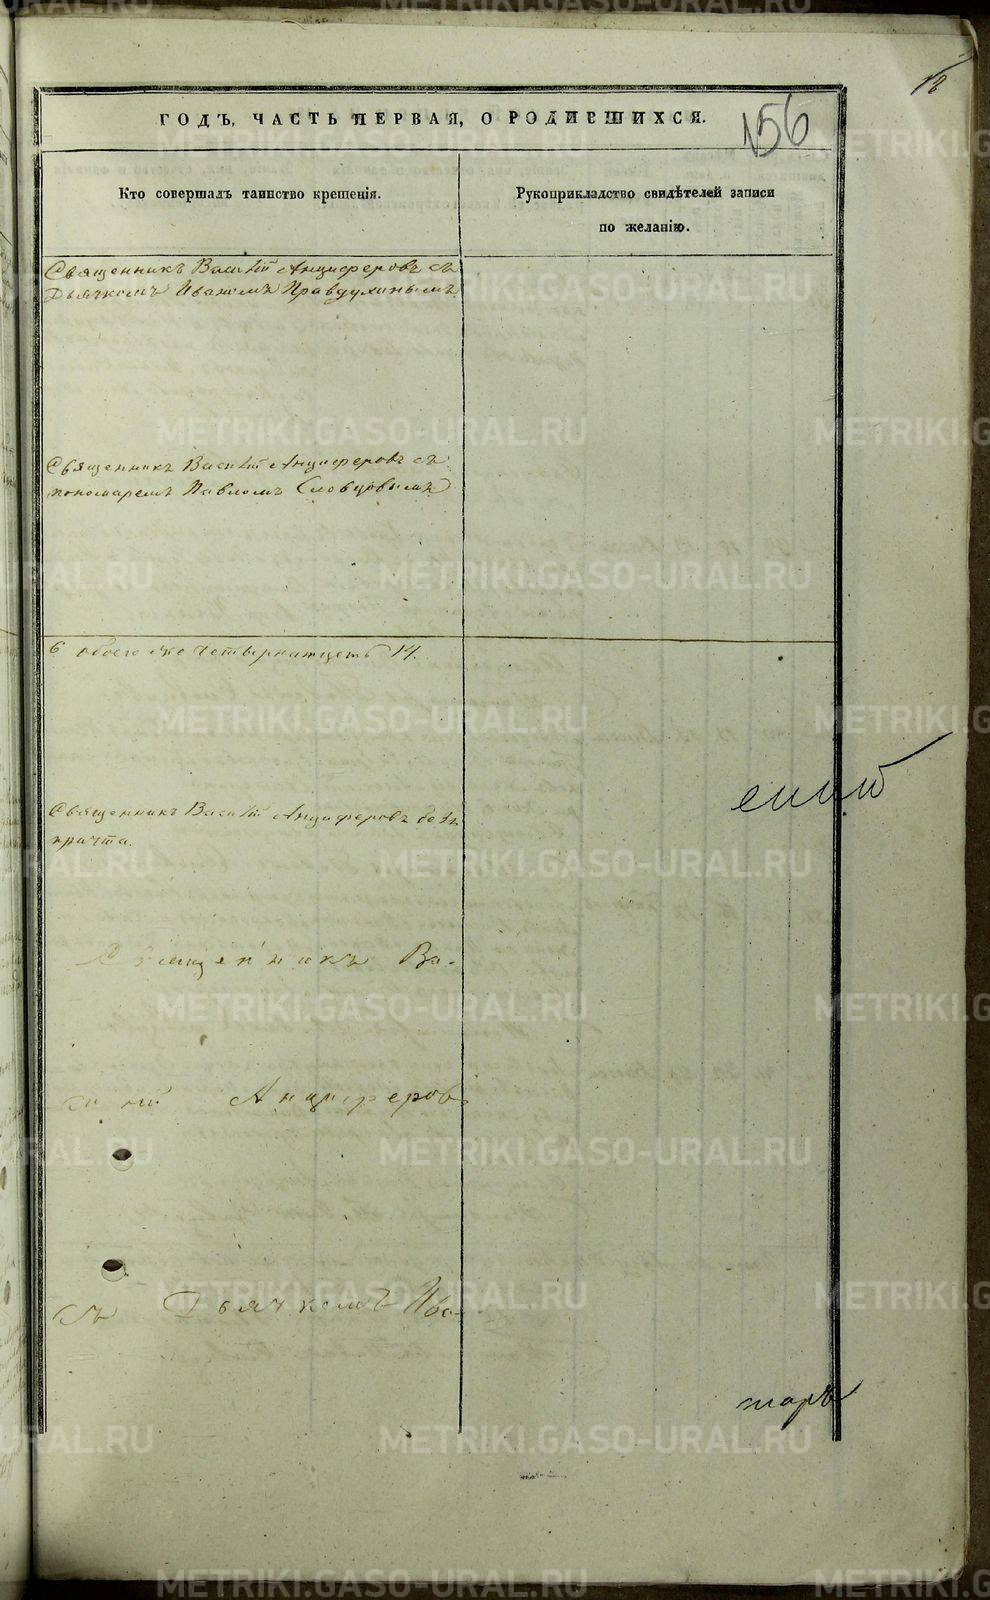 18
ГОДЪ, ЧАСТЬ ПЕРВАЯ, О РОДИВШИХСЯ.
156
Кто совершалъ таинство крещенія.
Рукоприкладство свидѣтелей записи
по желанію.
Священникъ Василій Анциферовъ съ
Дьячкомъ Иваномъ Правдухинымъ
Священникъ Василій Анциферовъ съ
пономаремъ Павломъ Словцовымъ
6 обоего же четырнатцеть 14.
Священникъ Василій Анциферовъ безъ
причта.
Священникъ Ва-
силій Анциферовъ
съ Дьячкомъ Ива-
METRIKI.GASO-URAL.RU